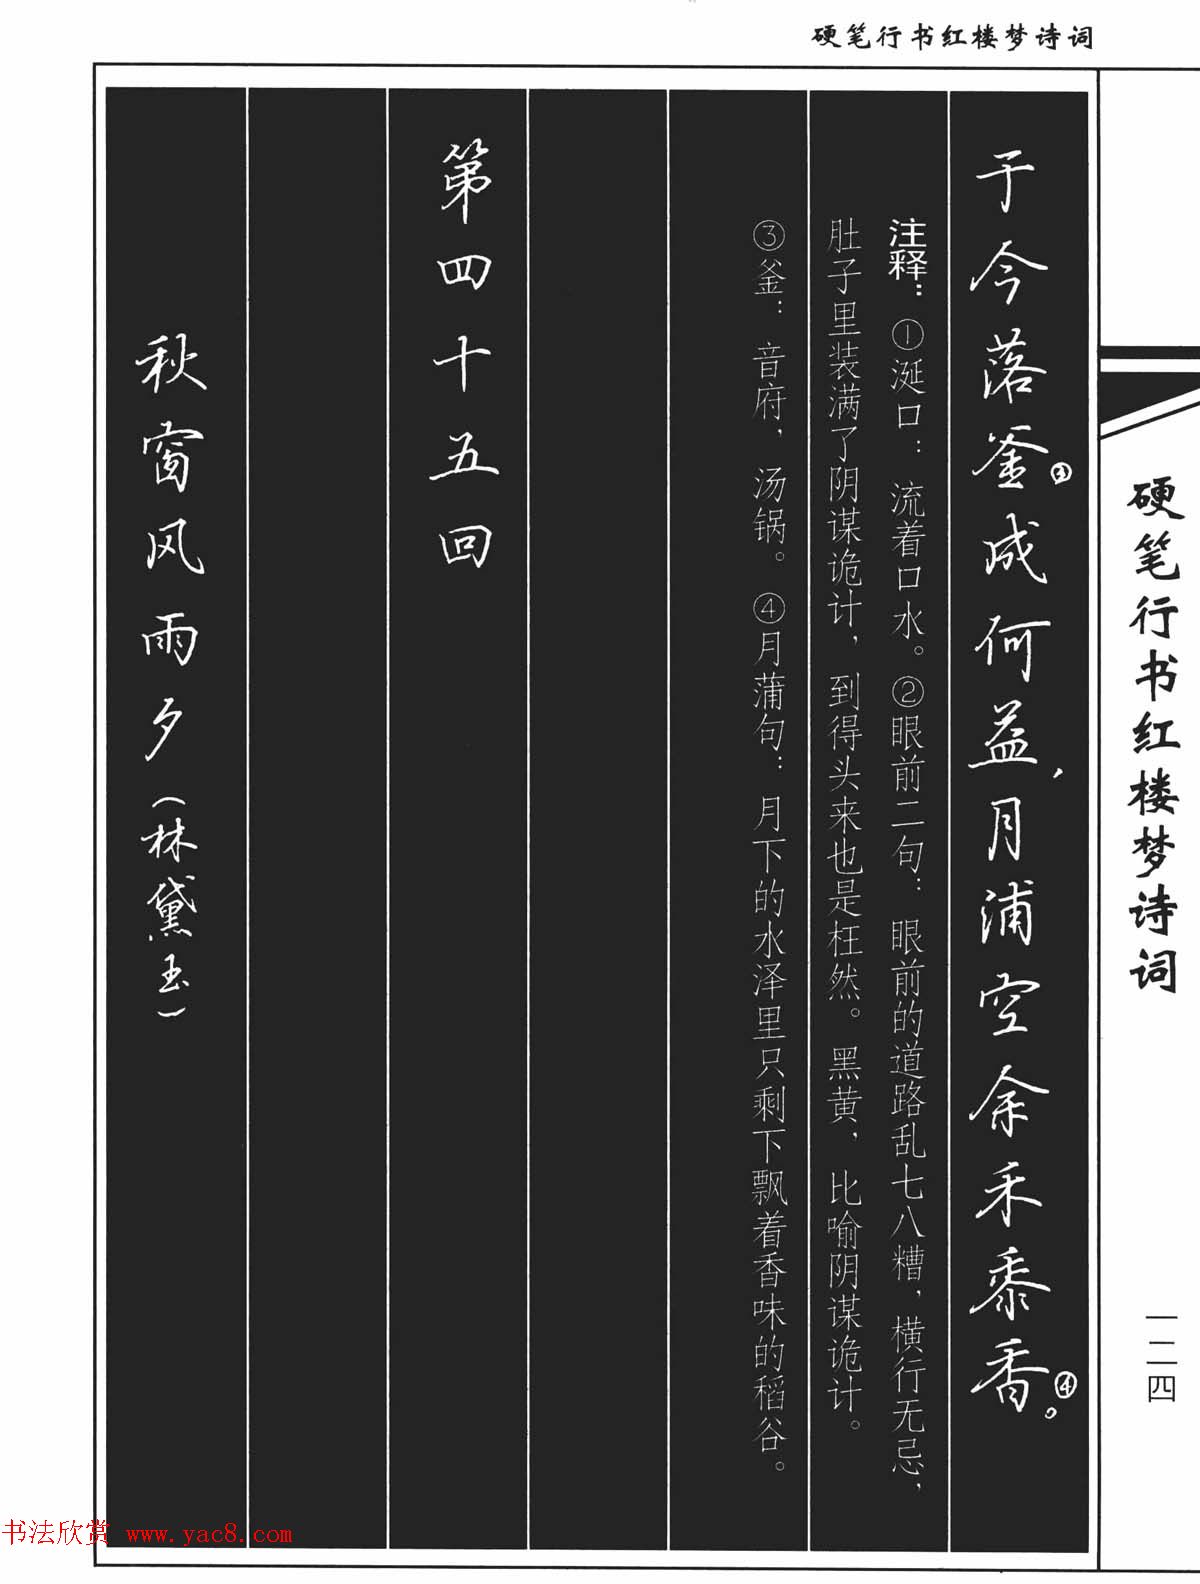 硬笔行书红楼梦诗词
硬笔行书红楼梦诗词
一二四
于今落釜③成何益，月浦空余禾黍香④。
注释：①涎口：流着口水。②眼前二句：眼前的道路乱七八糟，横行无忌，
肚子里装满了阴谋诡计，到得头来也是枉然。黑黄，比喻阴谋诡计。
③釜：音府，汤锅。④月蒲句：月下的水泽里只剩下飘着香味的稻谷。
第四十五回
秋窗风雨夕（林黛玉）
书法欣赏 www.yac8.com